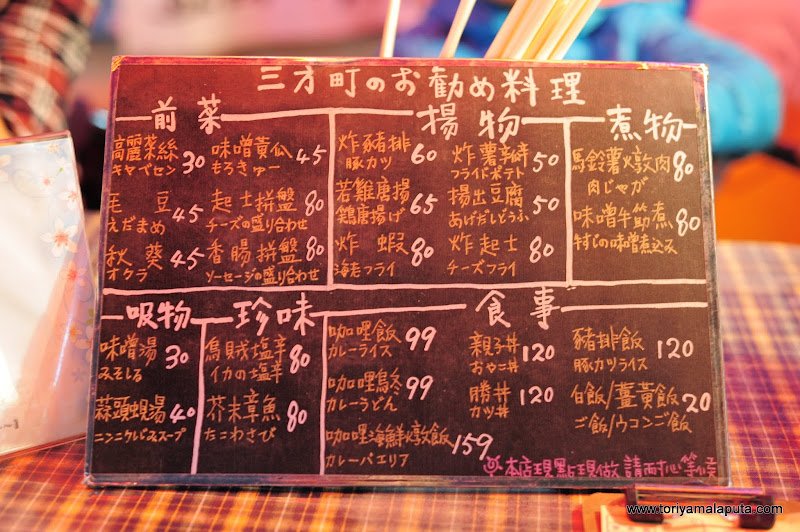 三才町のお勧め料理
前菜
高麗菜絲 30
キャベセン
味噌黃瓜 45
もろきゅー
毛豆 45
えだまめ
起士拼盤 80
チーズの盛り合わせ
秋葵 45
オクラ
香腸拼盤 80
ソーセージの盛り合わせ
揚物
炸豬排 60
豚カツ
炸薯 50
フライドポテト
若雞唐揚 65
鶏唐揚げ
揚出豆腐 50
あげだしどうふ
炸蝦 80
海老フライ
炸起士 80
チーズフライ
煮物
馬鈴薯燉肉 80
肉じゃが
味噌牛筋煮 80
牛すじの味噌煮込み
吸物
味噌湯 30
みそしる
蒜頭蜆湯 40
ニンニクしじみスープ
珍味
烏賊塩辛 80
イカの塩辛
芥末章魚 80
たこわさび
食事
咖哩飯 99
カレーライス
咖哩烏冬 99
カレーうどん
咖哩海鮮燉飯 159
カレーパエリア
親子丼 120
おやこ丼
勝丼 120
カツ丼
豬排飯 120
豚カツライス
白飯/薑黃飯 20
ご飯/ウコンご飯
本店現點現做 請耐心等候
www.toriyamalaputa.com